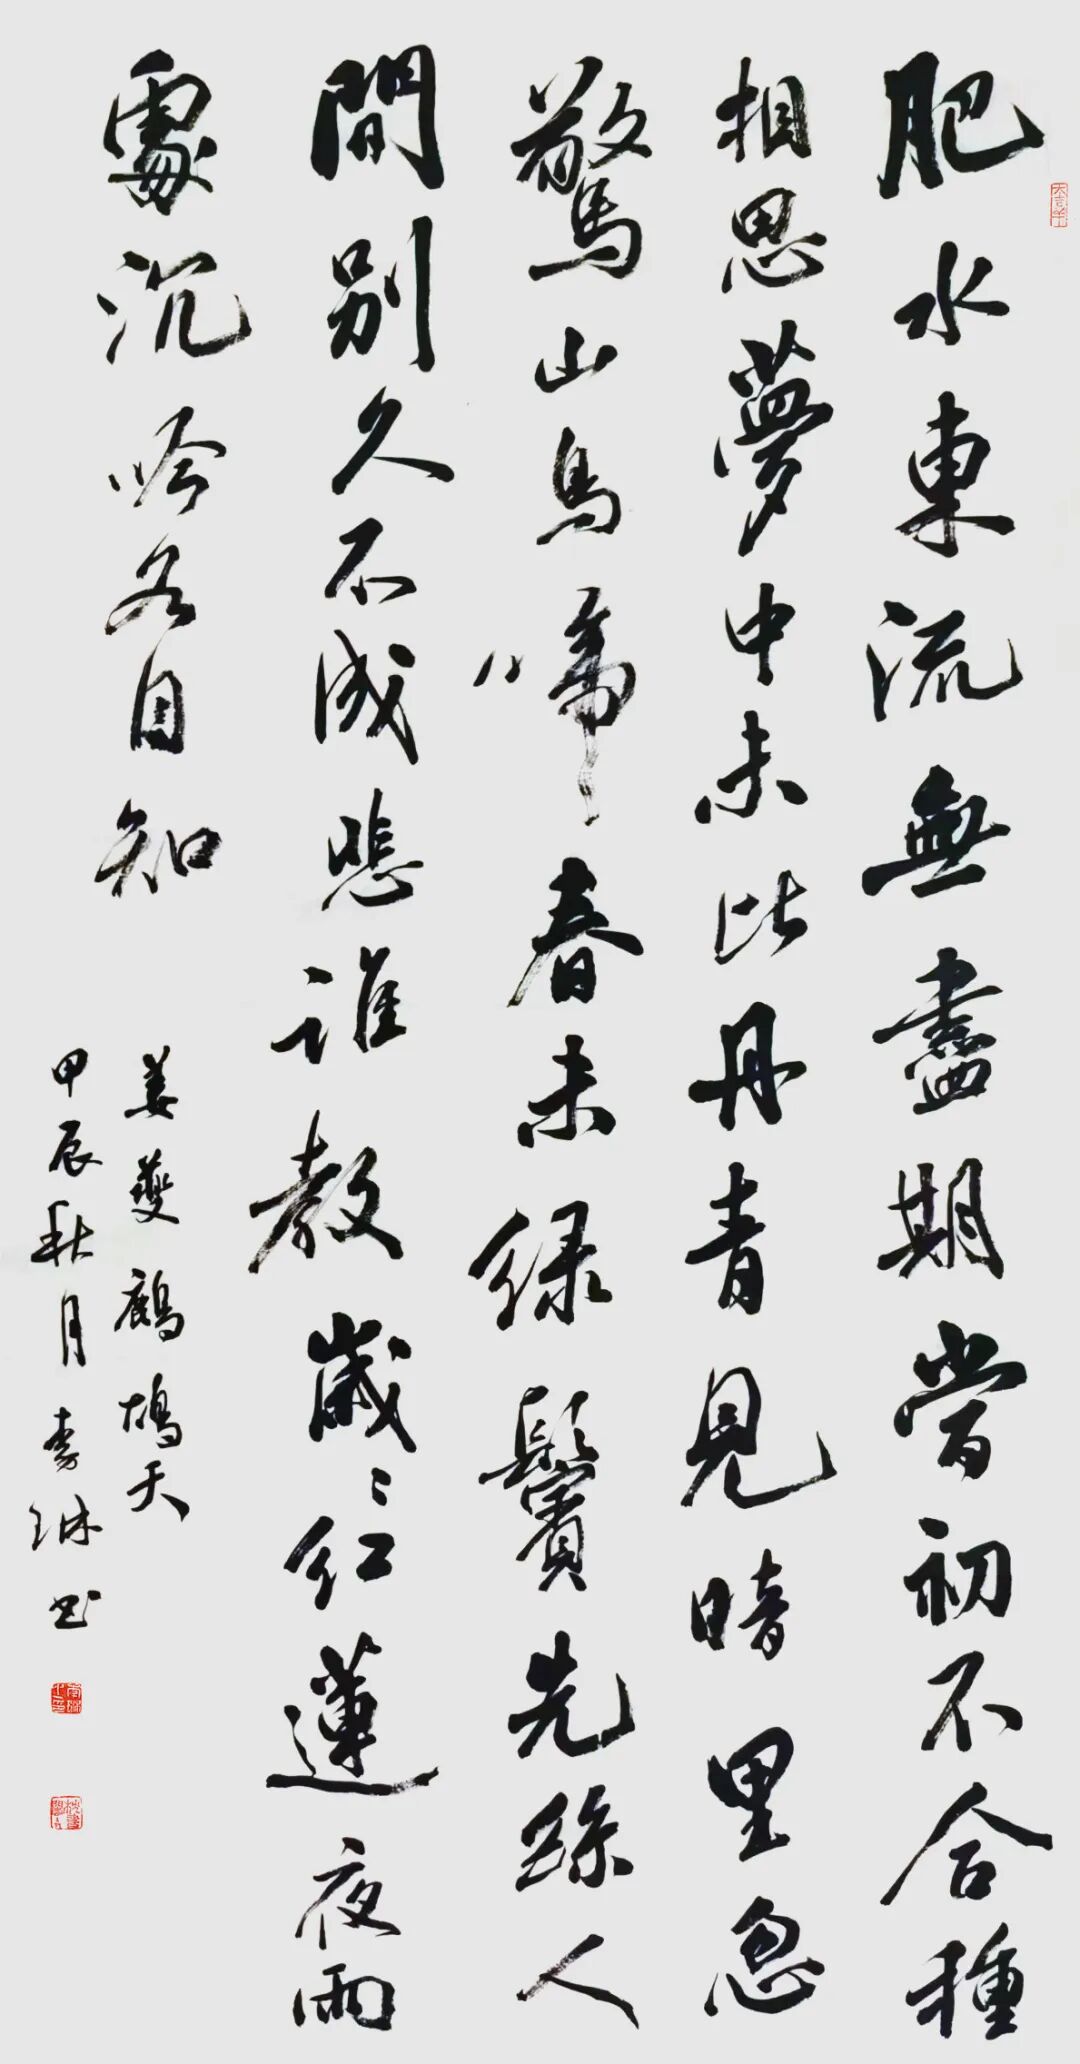 肥水東流無盡期當初不合種
相思夢中未比丹青見暗里忽
驚山鳥啼春未緑鬢先絲人
間别久不成悲誰教歲々紅蓮夜雨
處沉吟各自知
姜夔鷓鴣天
甲辰秋月琳书